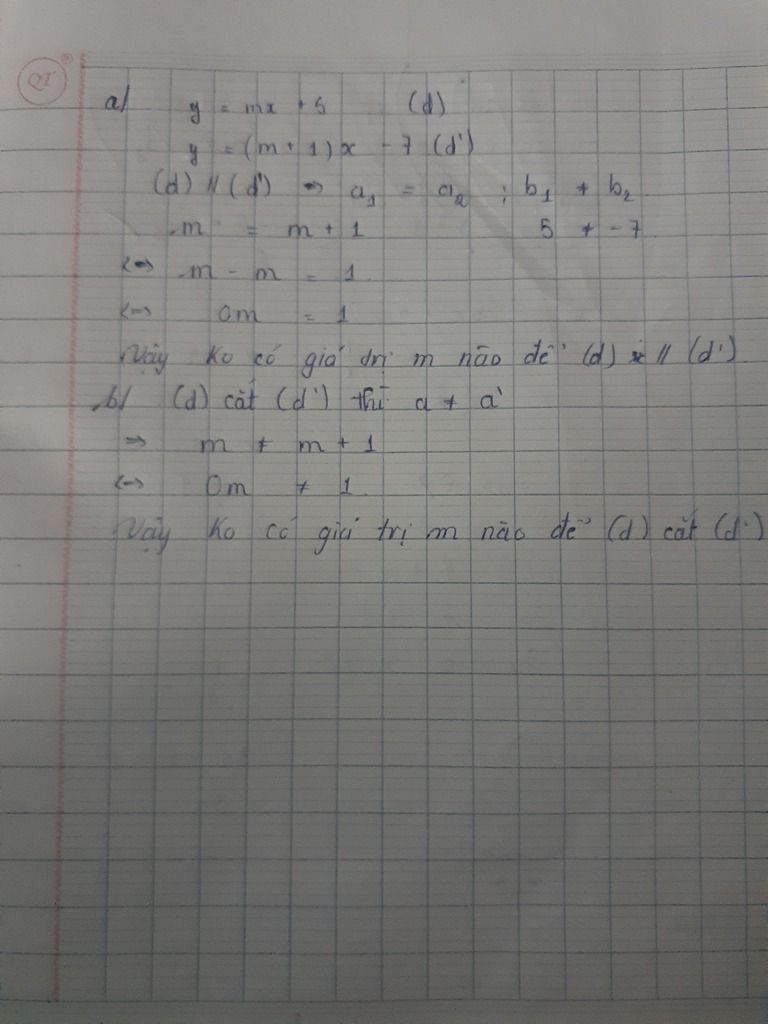 a/ y = mx + 5 (d)
y = (m + 1)x - 7 (d')
(d) // (d') => a₁ = a₂ ; b₁ ≠ b₂
m = m + 1 5 ≠ -7
<=> m - m = 1
<=> 0m = 1
Vậy Ko có giá trị m nào để (d) // (d')
b/ (d) cắt (d') thì a ≠ a'
=> m ≠ m + 1
<=> 0m ≠ 1
Vậy Ko có giá trị m nào để (d) cắt (d')